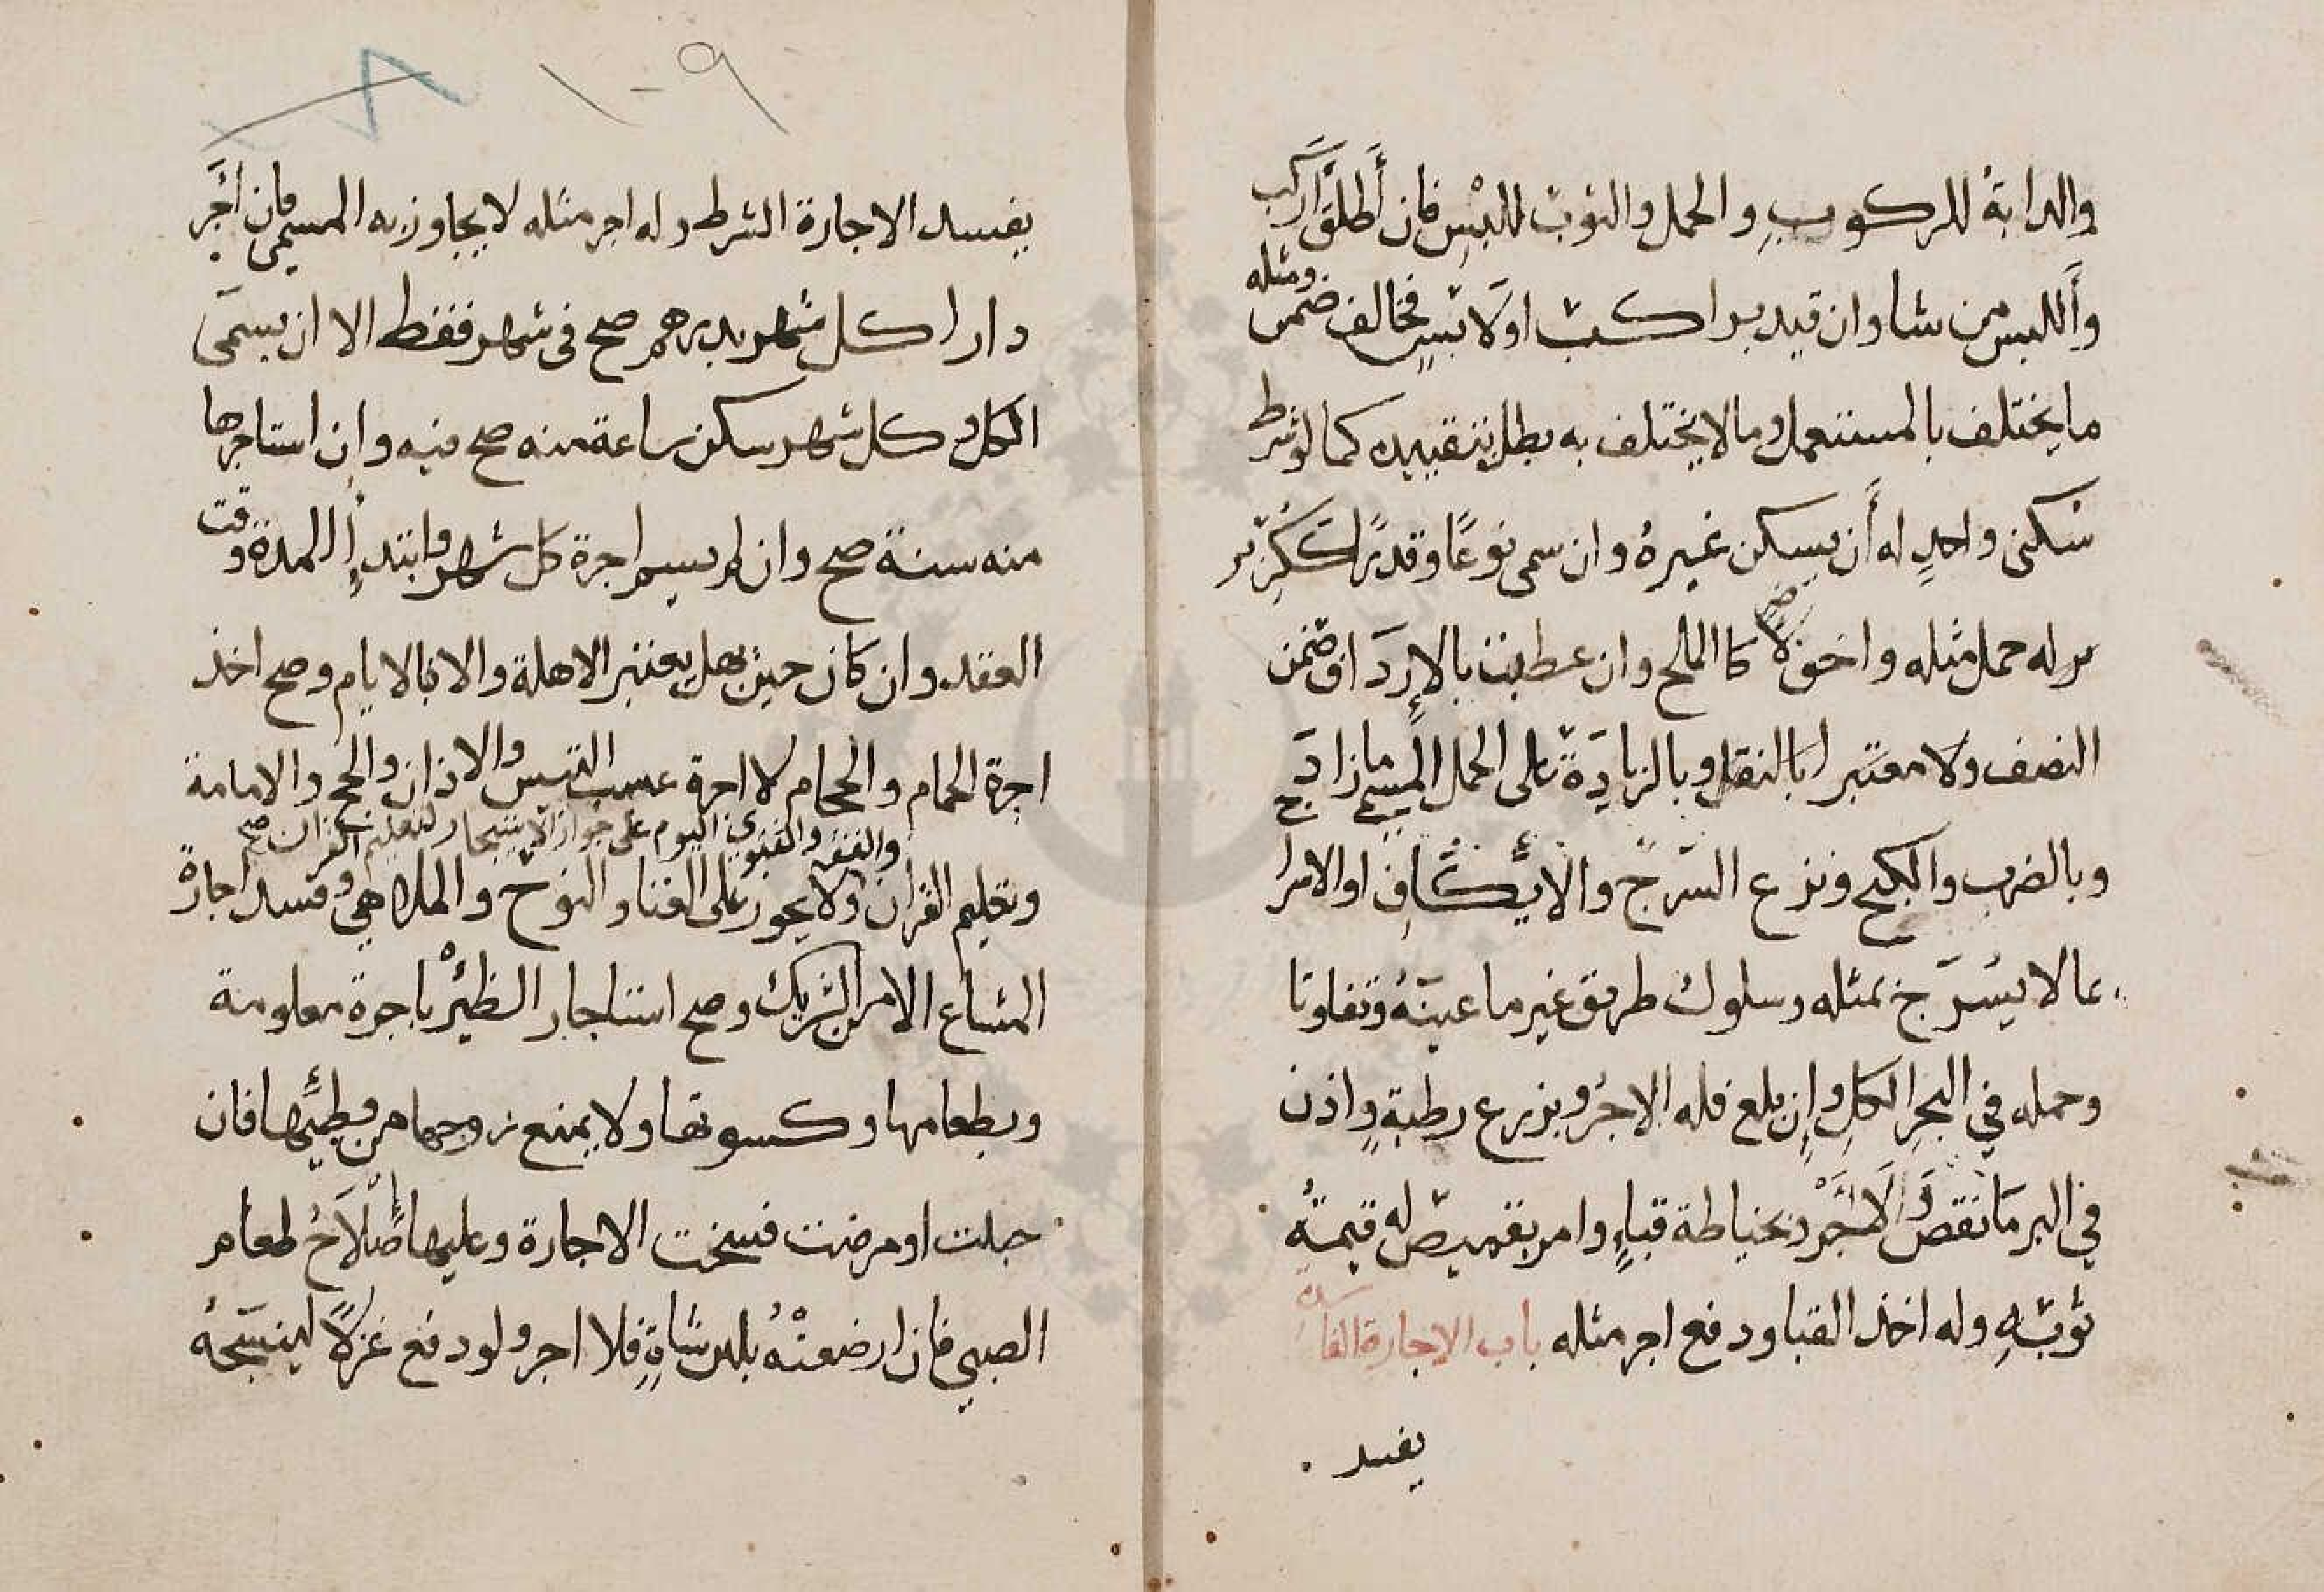 والدابةُ للركوبِ والحمل والثوب للبْسِ فان أَطلقَ اَركب
وأَللبس من شا وان قيد براكب اولَابسٍ فخالف ضمن ومثله
ما يختلف بالمستعمل وما لا يختلف به بطل تقييده كما لو شرط
سُكنى واحدٍ له أَن يسكن غيرهُ وان سمى نوعًا وقدرًا ككُرّ بر
بر له حمل مثله واخف لا اضر كا الملح وان عطبت بالإردَاف ضمن
النصف ولا معتبرا بالثقل وبالزيادَةً على الحمل المسمى ما زادَ
وبالضرب والكبح ونزع السَرجً والايكَافِ او الاسرا
عا لا يُسَرَج بمثله وسلوك طريق غير ما عينَهُ وتفاوتا
وحمله في البحرِ الكلِ واِن بلغ فله الاجرُ وبزرع رطبةٍ واذن
في البر مَا نقص وَلَا اَجْرَ وبخياطة قباءٍ وامر بقميص له قيمةُ
ثوبهِ وله اخذ القبا ودفع اجر مثله باب الاجارة الفاسدة
يفسد
١٠٩
يفسد الاجارة الشرط وله اجر مثله لا يجاوز به المسمى فان اَجَّر
دارا كل شهر بدرهم صح فى شهر فقط الا ان يسمىَ
الكل وكل شهر سكن ساعة منه صح فيه وان استاجرها
منه سنة صح وان لم يسم اجرة كل شهر وابتدإُ المدة وقت
العقد وان كان حين يهل يعتبر الاهلة والا فالايام وصح اخذ
اجرة الحمام والحجام لا اجرة عسب التيس والاذان والحج والامامة
والفقه والفتوى اليوم على جواز الاستيجار لتعليم القران صح
وتعليم القران ولا يجوز على الغنا والنوح والملاهي وفسد اجارةُ
المشاع الا من الشريك وصح استاجار الظئرْ باجرة معلومة
وبطعامها وكسوتها ولا يمنع زوجها من وطئِها فان
حبلت او مرضت فسخت الاجارة وعليها اصْلَاحُ طعام
الصبي فان ارضعتْهُ بلبن شاةٍ فلا اجر ولو دفع غزلًا لينسَجهُ